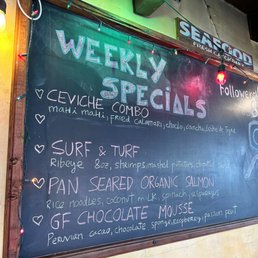 SEAFOOD
WEEKLY
SPECIALS
Followers
CEVICHE COMBO
mahi mahi, fried calamari, choclo, cancha, leche de tigre
SURF & TURF
Ribeye 8oz, shrimps, mashed potatoes, chipotle
PAN SEARED ORGANIC SALMON
Rice noodles, coconut milk, spinach, asparagus
GF CHOCOLATE MOUSSE
Peruvian cacao, chocolate sponge, raspberry, passion fruit